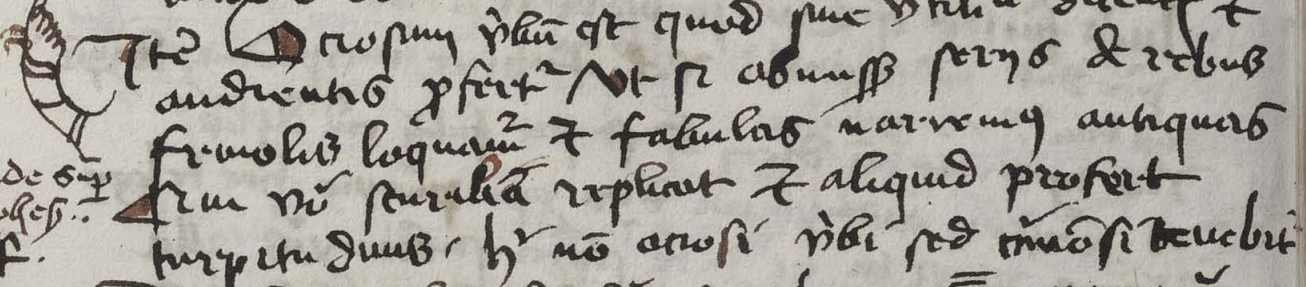 Itē Ociosum v̉bū est quod sine vtilitate dicentis ⁊
audientis ꝓfertᷣ Vt si obmissꝭ serijs de rebus
friuolis loquamᷣ ⁊ fabulas narremꝰ antiquas
Qui vō scurulia replicat ⁊ aliquid profert
turpitudinis, hͥ nō ociosi v̉bi sed cͥmīosi tenebit᷑
de